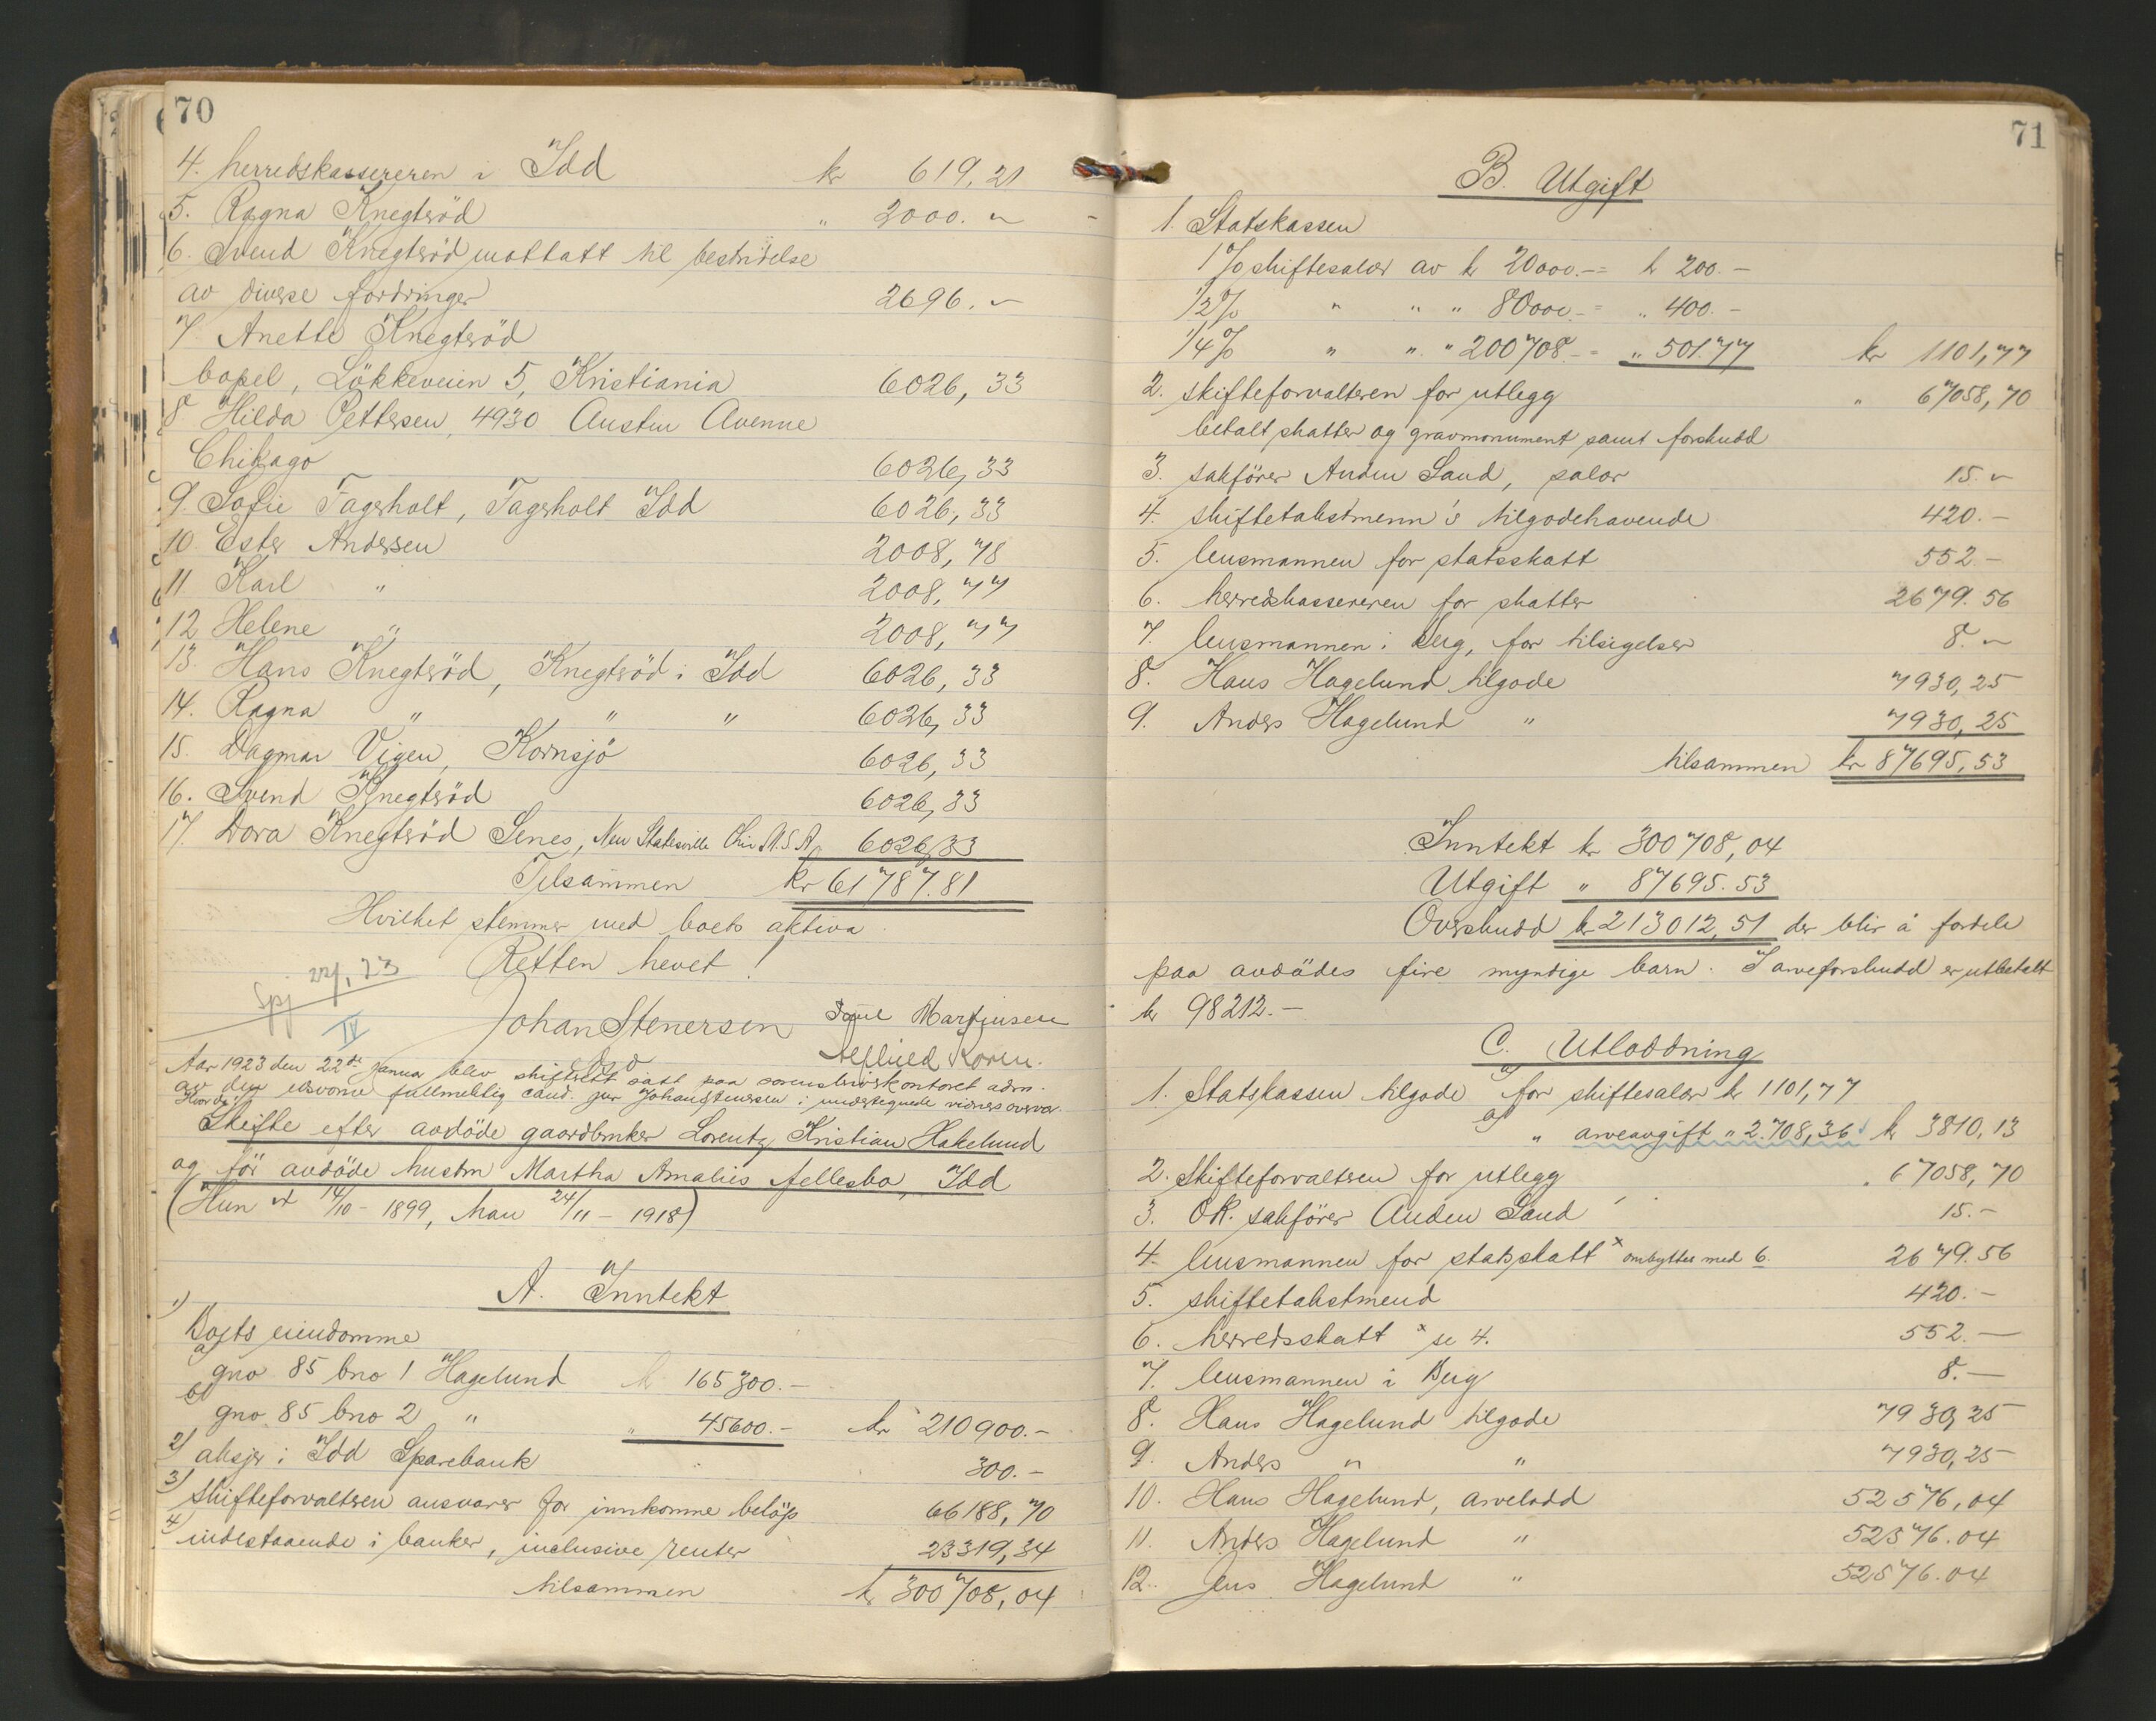 70
4. herredskassereren i Idd kr 619,21
5. Ragna Knegtsöd " 2000. -
6. Svend Knegtsöd mottatt til bestridelse
av diverse fordringer 2696. -
7 Anette Knegtsöd
bopel, Lökkeveien 5, Kristiania 6026,33
8 Hilda Pettersen, 4930 Austin Avenue
Chikago 6026,33
9. Sofie Fagerholt, Fagerholt Idd 6026,33
10. Ester Andersen 2008,78
11. Karl " 2008,77
12 Helene " 2008,77
13. Hans Knegtsöd, Knegtsöd i Idd 6026,33
14. Ragna " " " 6026,33
15. Dagmar Vigen, Kornsjö 6026,33
16. Svend Knegtsöd 6026,33
17. Dora Knegtsöd Senes, New Statesville U.S.A. 6026,33
Tilsammen kr 61787.81
Hvilket stemmer med boets aktiva.
Retten hevet!
Johan Stenersen
Aar 1923 den 22de januar blev skifterett satt paa sorenskriverkontoret adm.
av den edsvorne fullmektig cand. jur Johan Stenersen i undertegnede vidners overvær.
Hvorda:
Skifte efter avdöde gaardbruker Lorentz Kristian Hakelund
og för avdöde hustru Martha Amalies fellesbo, Idd
(Hun † 14/10 - 1899, han 24/11 - 1918)
A. Inntekt
1) Boets eiendomme
a) gno 85 bno 1 Hagelund kr 165300.-
b) gno 85 bno 2 " " 45600.- kr 210900.-
2) aksjer i Idd Sparebank 300.-
3) skifteforvalteren ansvarer for innkomne belöp 66188,70
4) indestaaende i banker, inclusive renter 23319,34
tilsammen kr 300708,04
71
B. Utgift
1. Statskassen
1% skiftesalær av kr 20000.- = kr 200.-
1/2% " " " 80000.- = " 400.-
1/4% " " " 200708.- = " 501.77 kr 1101,77
2. skifteforvalteren for utlegg " 67058,70
betalt skatter og gravmonument samt forskudd
3. sakförer Anden Sand, salær 15. -
4. skiftetakstmenn's tilgodehavende 420.-
5. lensmannen for statsskatt 552.-
6. herredskassereren for skatter 2679.56
7 lensmannen i Berg, for tilsigelser 8. -
8. Hans Hagelund tilgode 7930,25
9. Anders Hagelund " 7930,25
tilsammen kr 87695,53
Inntekt kr 300708,04
Utgift " 87695.53
Overskudd kr 213012,51 der blir å fordele
paa avdödes fire myndige barn. I arveforskudd er utbetalt
kr 98212.-
C. Utlodning
1. Statskassen tilgode a) for skiftesalær kr 1101,77
b) " arveavgift " 2.708,36 kr 3810,13
2. Skifteforvalteren for utlegg " 67058,70
3. OR. sakförer Anden Sand 15.-
4. lensmannen for statsskatt x ombyttes med 6. 2679.56
5. skiftetakstmend 420.-
6. herredsskatt x se 4. 552.-
7. lensmannen i Berg 8.-
8. Hans Hagelund tilgode 7930,25
9. Anders " " 7930,25
10. Hans Hagelund, arvelodd 52576,04
11. Anders Hagelund " 52576.04
12. Jens Hagelund " 52576.04